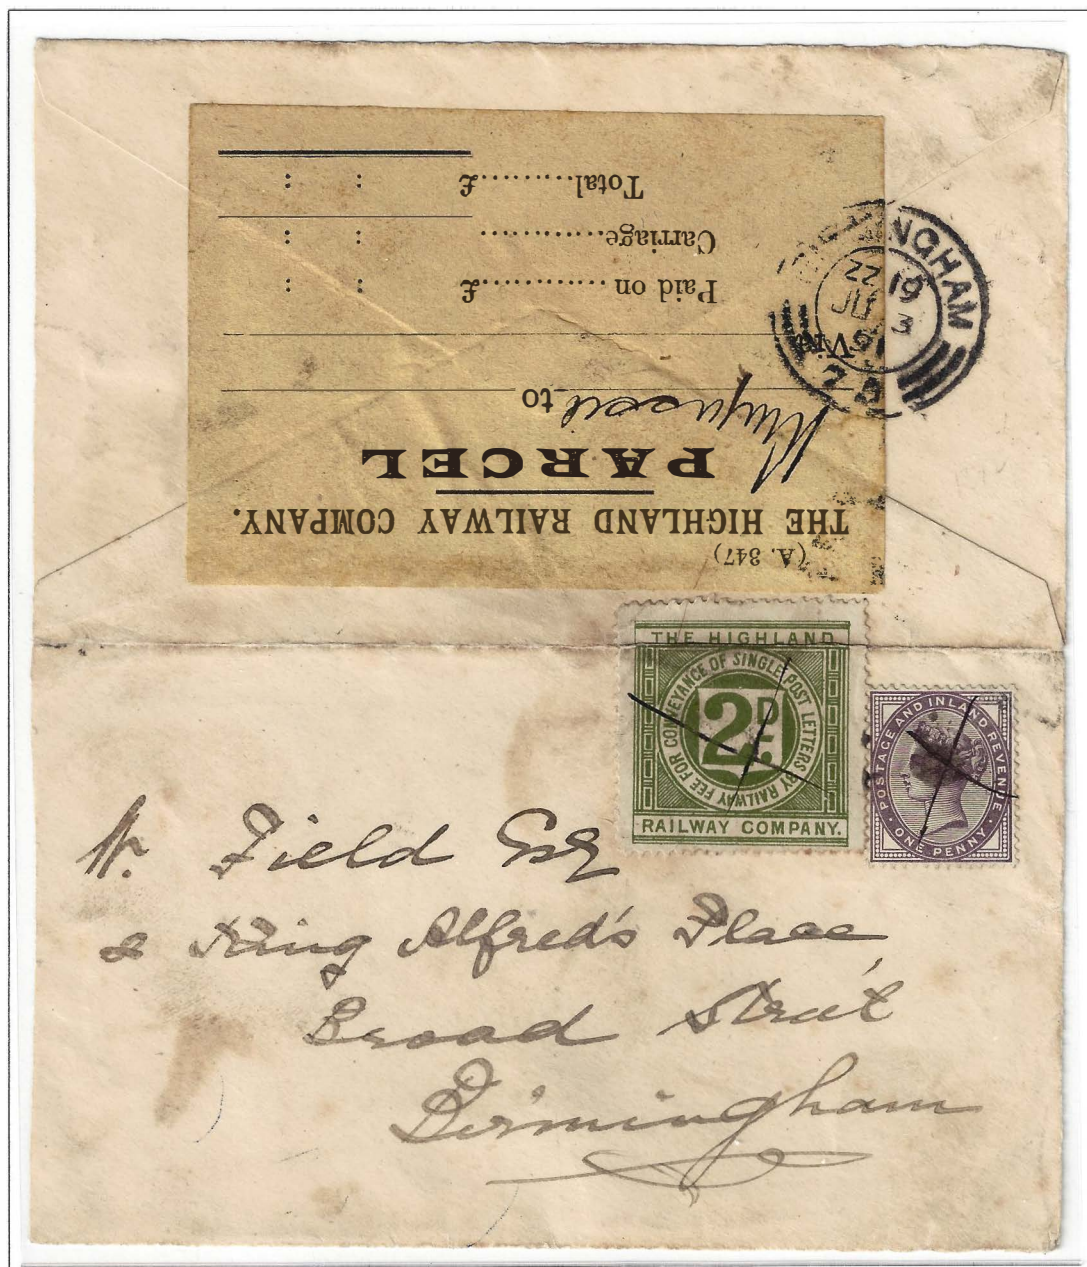 (A. 347)
THE HIGHLAND RAILWAY COMPANY.
PARCEL
to
Paid on ............£
Carriage............
Total.........£
THE HIGHLAND
FEE FOR CONVEYANCE OF SINGLE POST LETTERS BY RAILWAY
2D.
RAILWAY COMPANY.
POSTAGE AND INLAND REVENUE
ONE PENNY
W. Field Esq
2 King Alfred's Place,
Broad Street
Birmingham